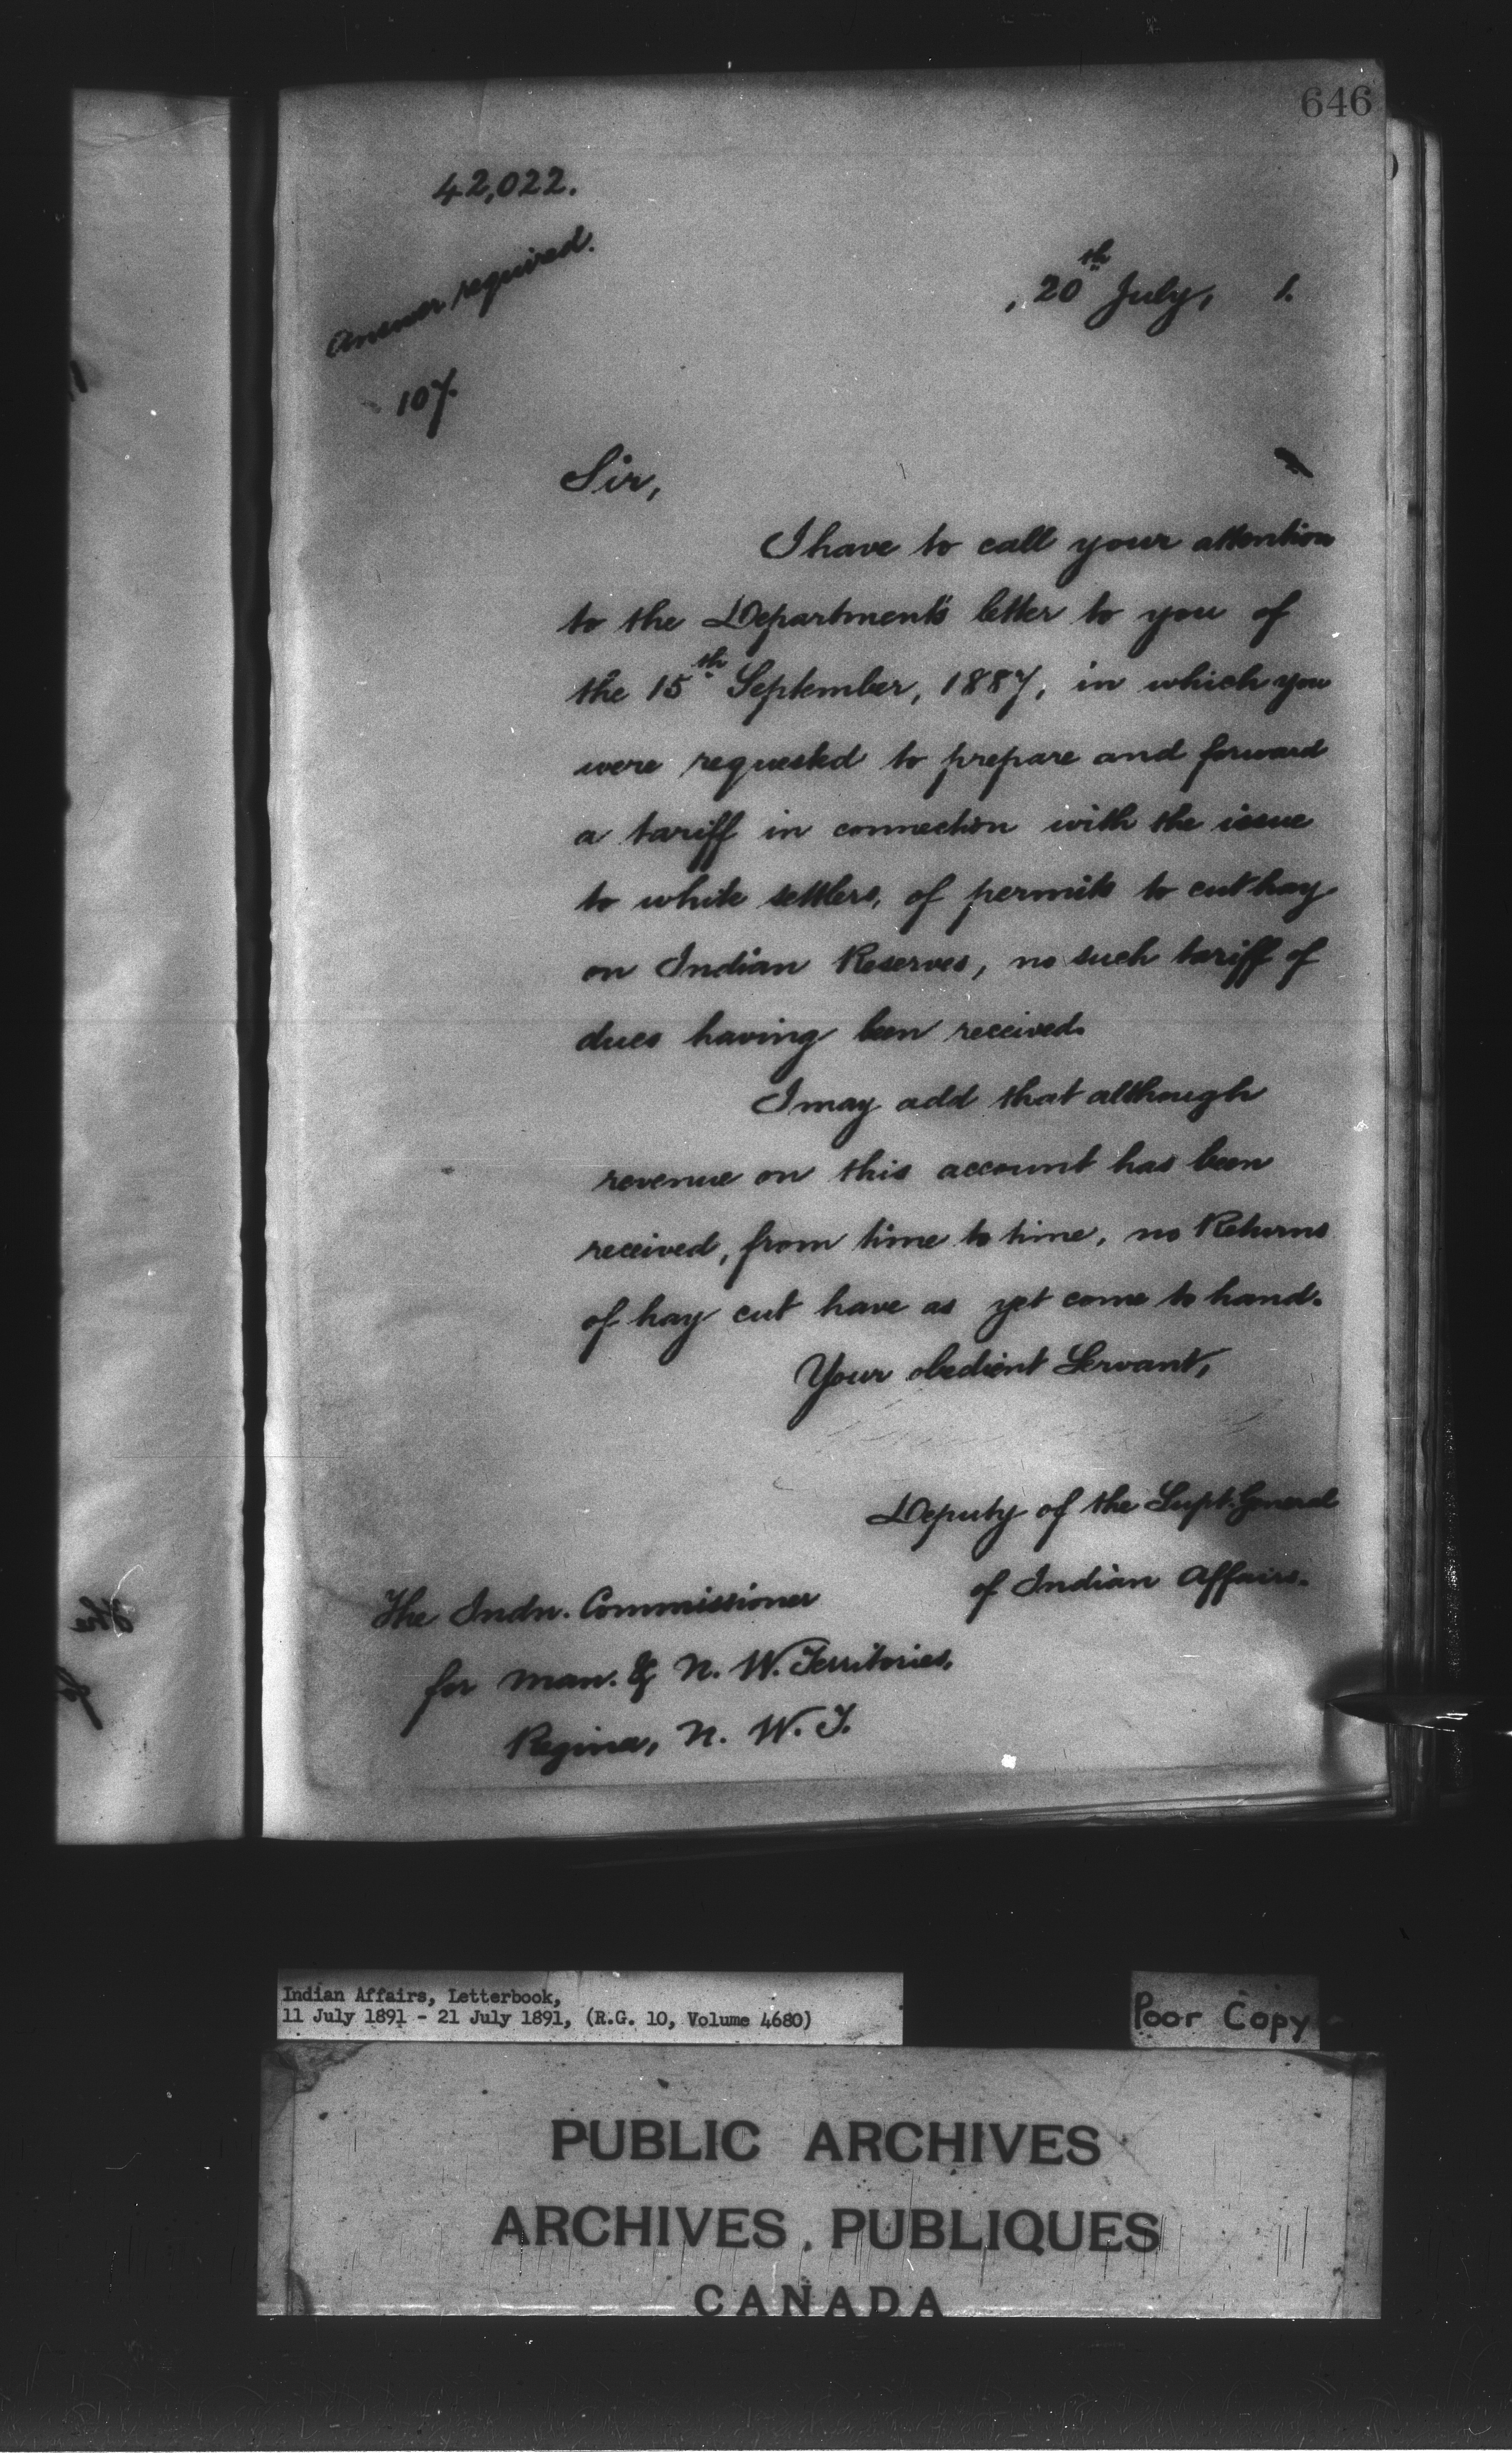 646
42,022.
Answer required.
107.
, 20th July, 1.
Sir,
I have to call your attention
to the Department's letter to you of
the 15th September, 1887, in which you
were requested to prepare and forward
a tariff in connection with the issue
to white settlers, of permits to cut hay
on Indian Reserves, no such tariff of
dues having been received.
I may add that although
revenue on this account has been
received, from time to time, no Returns
of hay cut have as yet come to hand.
Your obedient Servant,
Deputy of the Supt. General
of Indian Affairs.
The Indn. Commissioner
for Man. & N. W. Territories,
Regina, N. W. T.
Indian Affairs, Letterbook,
11 July 1891 - 21 July 1891, (R.G. 10, Volume 4680)
Poor Copy
PUBLIC ARCHIVES
ARCHIVES PUBLIQUES
CANADA